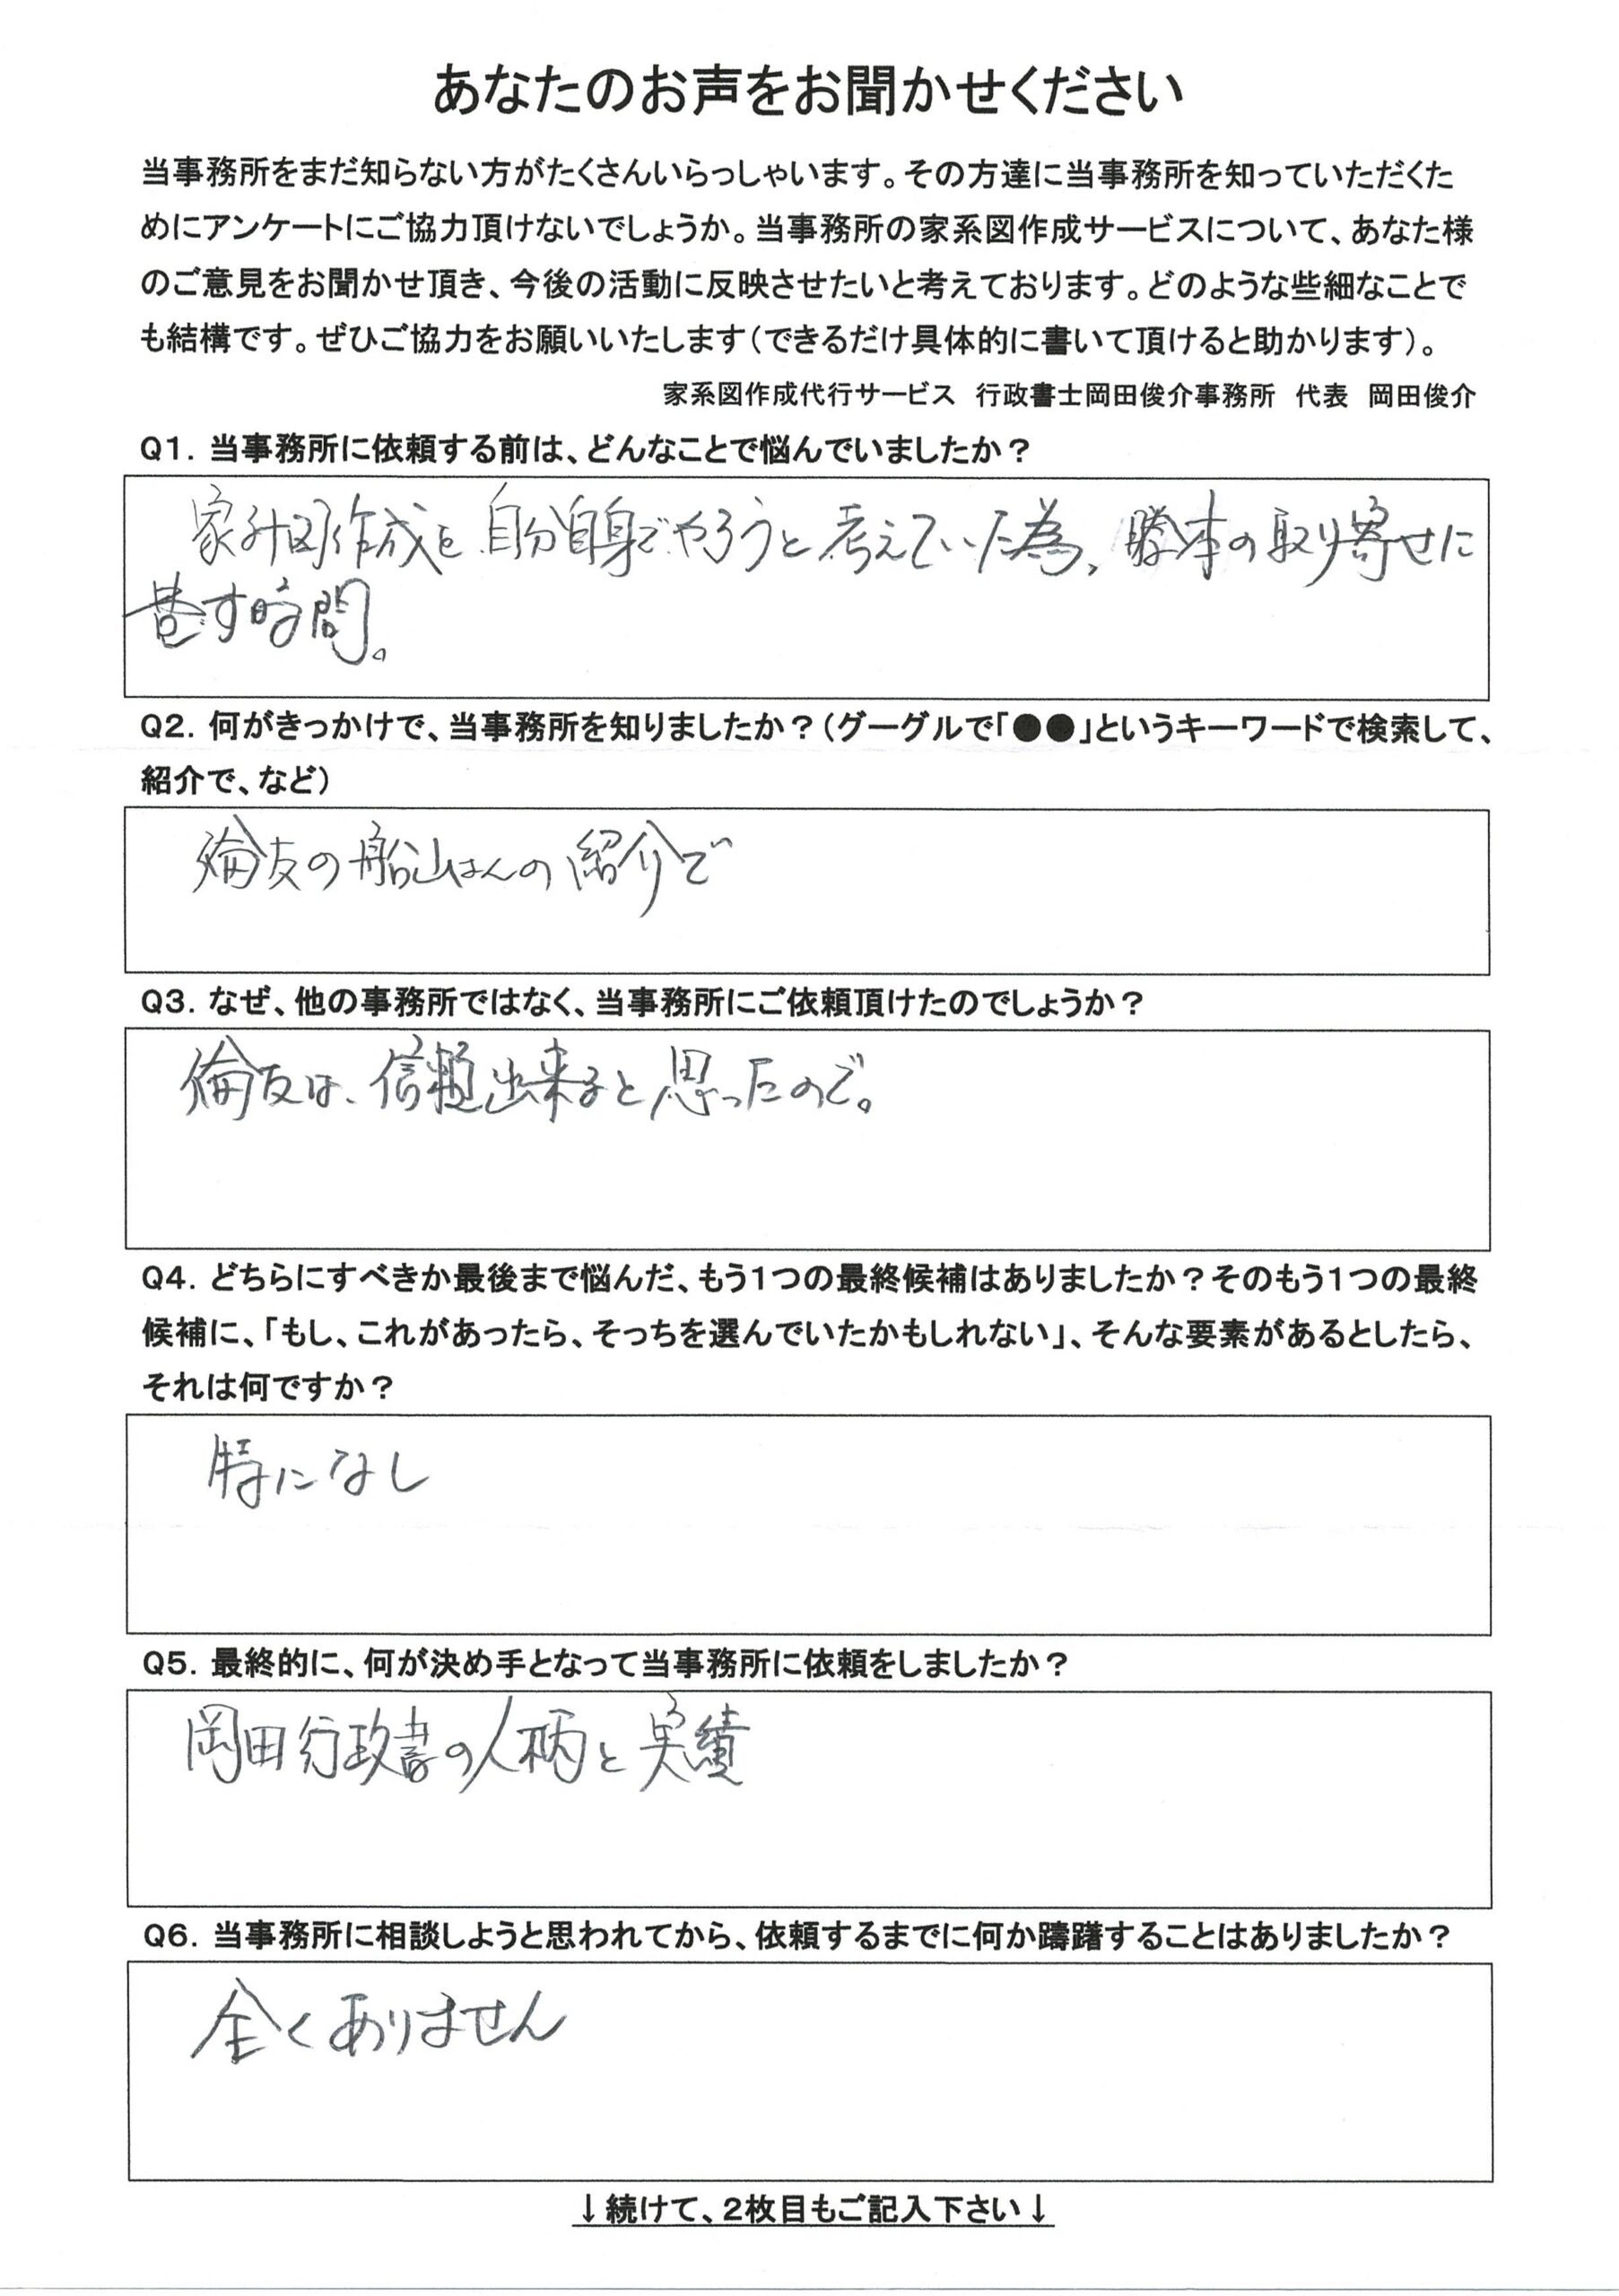 あなたのお声をお聞かせください
当事務所をまだ知らない方がたくさんいらっしゃいます。その方達に当事務所を知っていただくた
めにアンケートにご協力頂けないでしょうか。当事務所の家系図作成サービスについて、あなた様
のご意見をお聞かせ頂き、今後の活動に反映させたいと考えております。どのような些細なことで
も結構です。ぜひご協力をお願いいたします（できるだけ具体的に書いて頂けると助かります）。
家系図作成代行サービス　行政書士岡田俊介事務所　代表　岡田俊介
Q1．当事務所に依頼する前は、どんなことで悩んでいましたか？
家計図作成を自分自身でやろうと考えていた為、謄本の取り寄せに
費す時間。
Q2．何がきっかけで、当事務所を知りましたか？（グーグルで「●●」というキーワードで検索して、
紹介で、など）
倫友の船山さんの紹介で
Q3．なぜ、他の事務所ではなく、当事務所にご依頼頂けたのでしょうか？
倫友は、信頼出来ると思ったので。
Q4．どちらにすべきか最後まで悩んだ、もう１つの最終候補はありましたか？そのもう１つの最終
候補に、「もし、これがあったら、そっちを選んでいたかもしれない」、そんな要素があるとしたら、
それは何ですか？
特になし
Q5．最終的に、何が決め手となって当事務所に依頼をしましたか？
岡田行政書の人柄と実績
Q6．当事務所に相談しようと思われてから、依頼するまでに何か躊躇することはありましたか？
全くありません
↓続けて、２枚目もご記入下さい↓